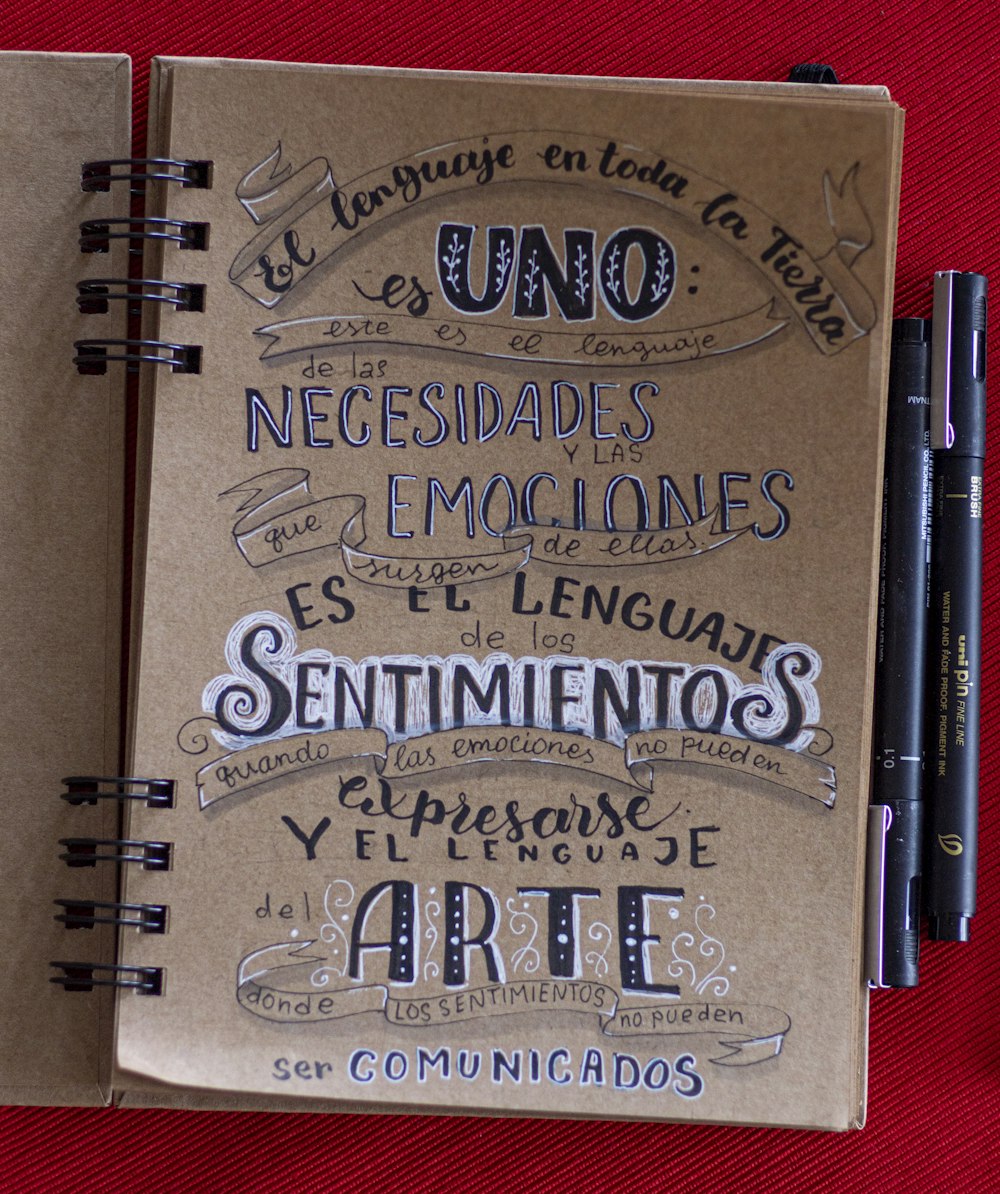 El lenguaje en toda la Tierra
es UNO:
este es el lenguaje
de las
NECESIDADES
Y LAS
EMOCIONES
que surgen de ellas.
ES EL LENGUAJE
de los
SENTIMIENTOS
quando las emociones no pueden
expresarse.
Y EL LENGUAJE
del ARTE
donde LOS SENTIMIENTOS no pueden
ser COMUNICADOS
MITSUBISHI PENCIL CO., LTD.
1.0
BRUSH
EXTRA FINE
uni pin FINE LINE
WATER AND FADE PROOF, PIGMENT INK